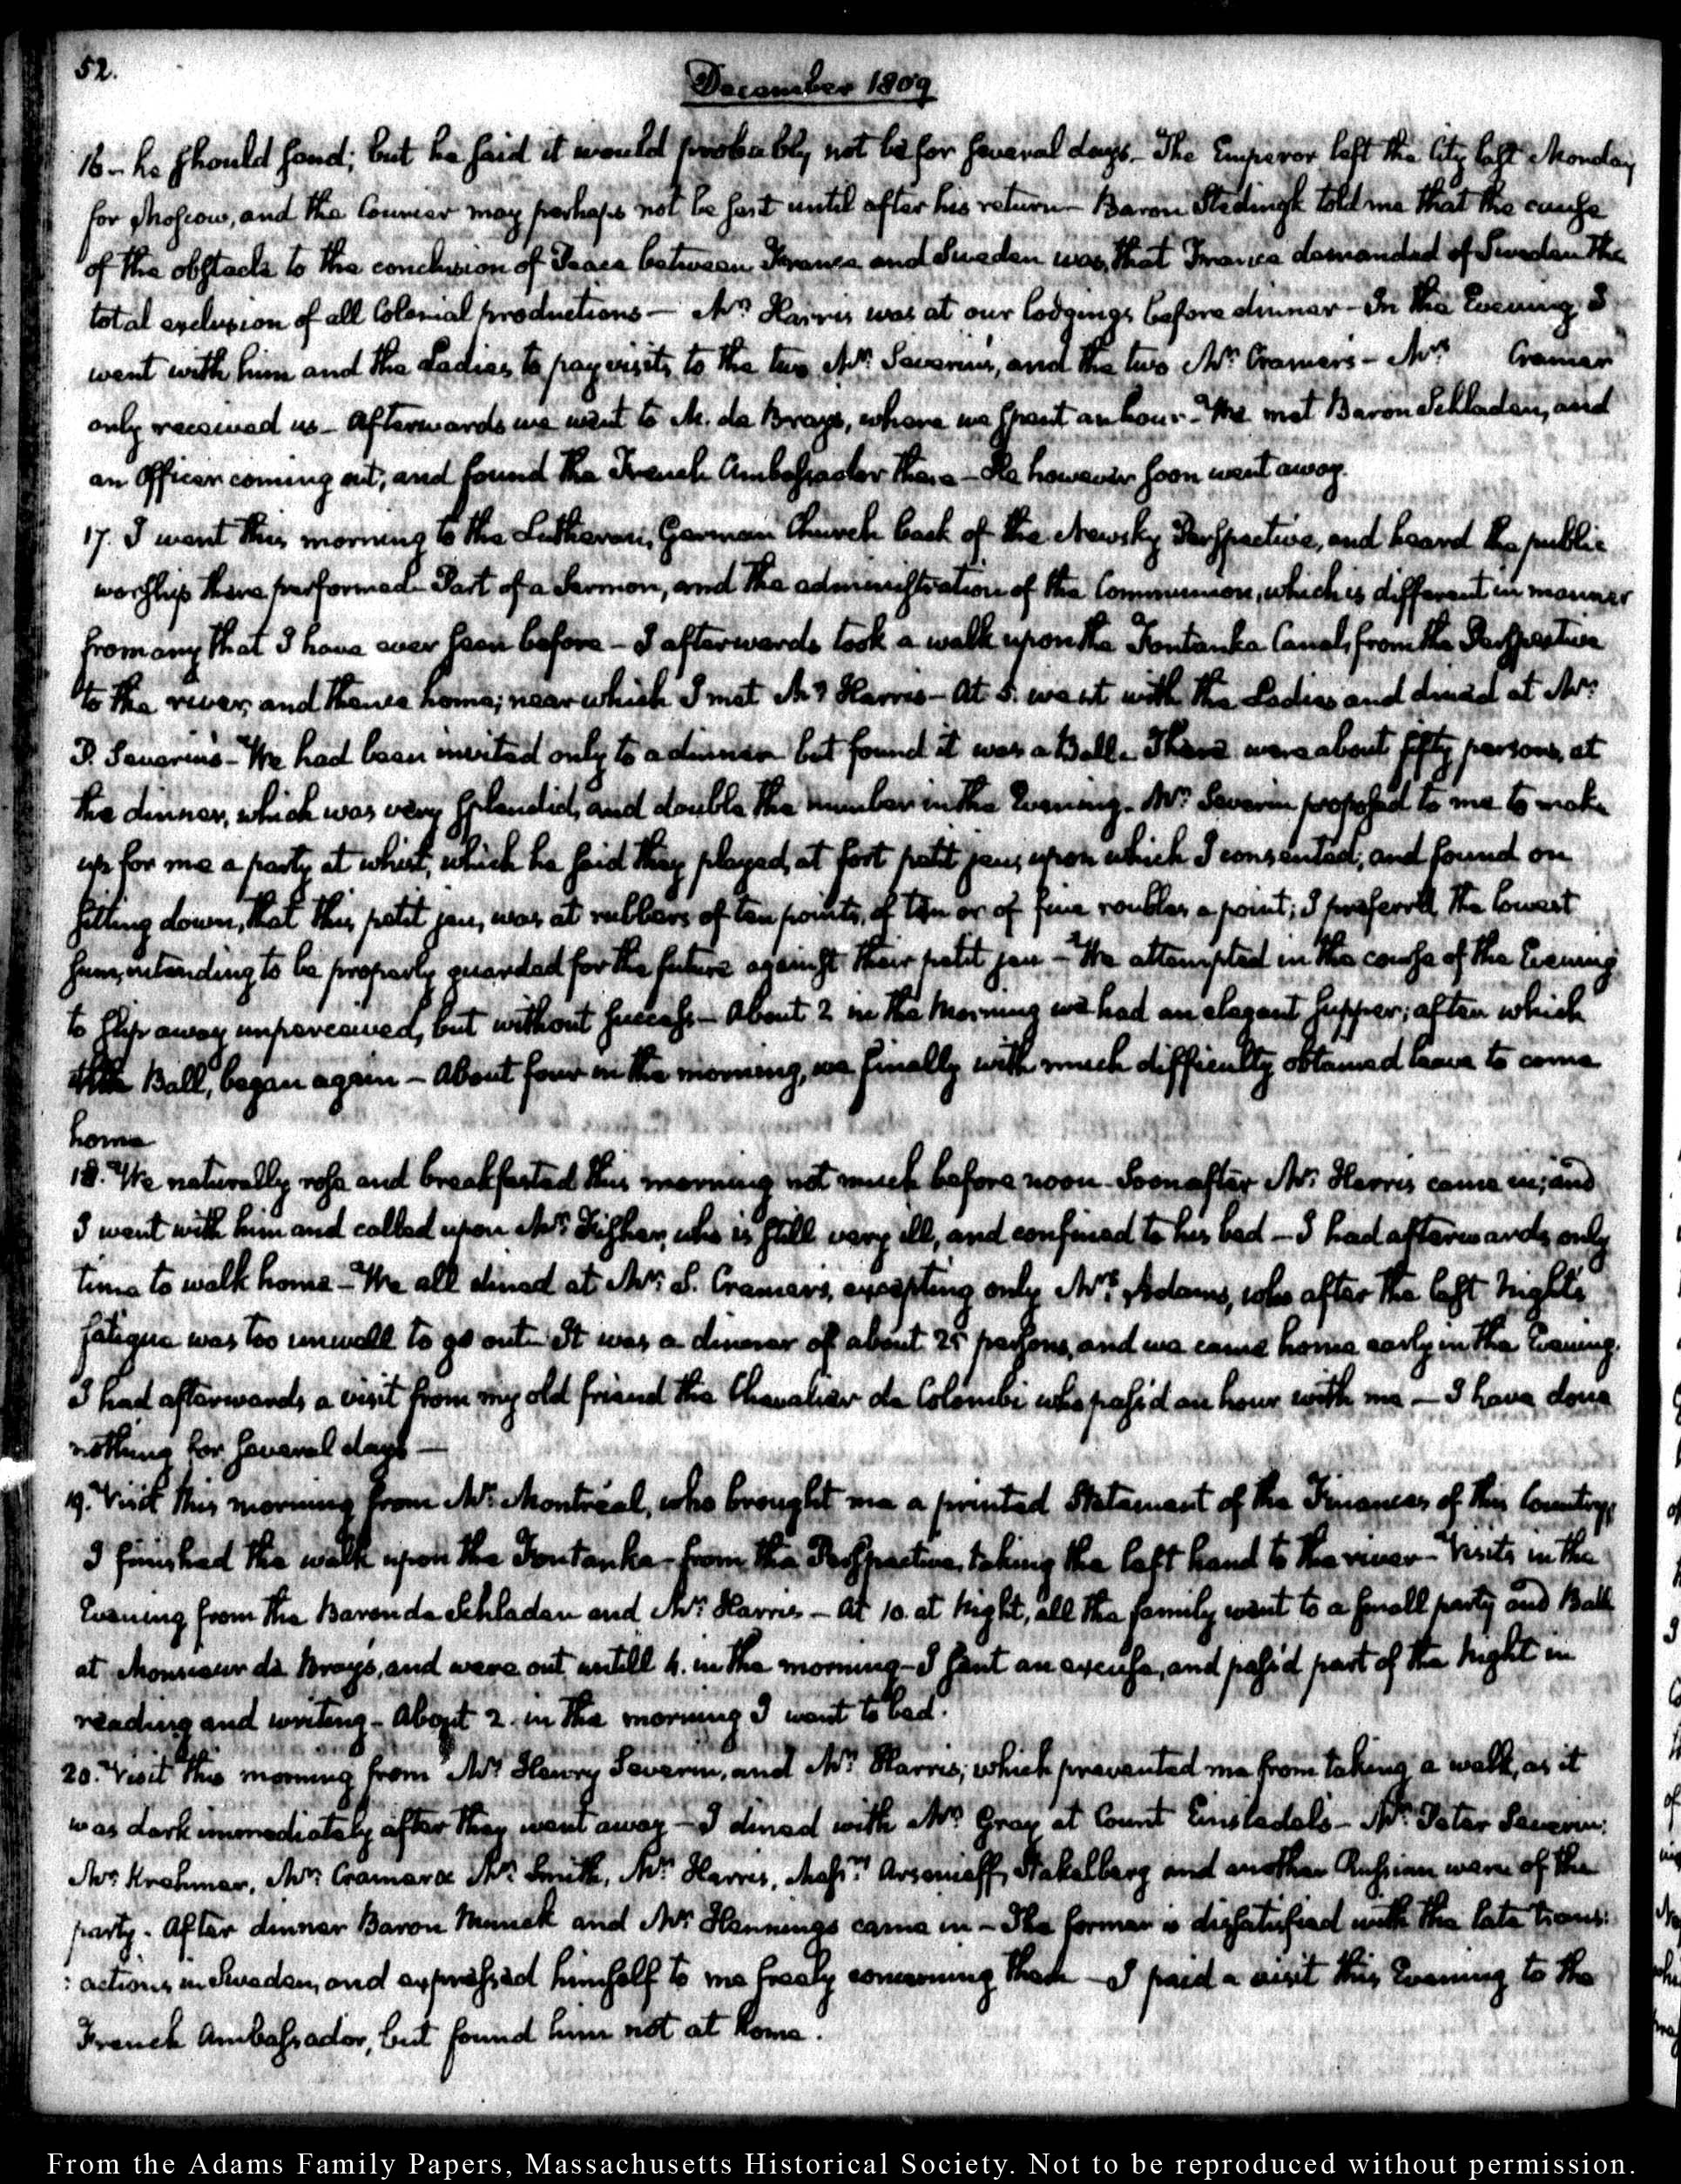 52.
December 1809
16 – he should send; but he said it would probably not be for several days – The Emperor left the City last Monday
for Moscow, and the Courier may perhaps not be sent until after his return – Baron Stedingk told me that the cause
of the obstacle to the conclusion of Peace between France and Sweden was, that France demanded of Sweden the
total exclusion of all Colonial productions – Mr. Harris was at our lodgings before dinner – In the Evening, I
went with him and the Ladies to pay visits to the two Mr. Severins, and the two Mr. Cramers – Mrs. Cramer
only received us – Afterwards we went to M. de Bray's, where we spent an hour – We met Baron Schladen, and
an Officer coming out, and found the French Ambassador there – He however soon went away.
17. I went this morning to the Lutheran, German Church back of the Newsky Perspective, and heard the public
worship there performed – Part of a Sermon, and the administration of the Communion, which is different in manner
from any that I have ever seen before – I afterwards took a walk upon the Fontanka Canal, from the Perspective
to the river, and thence home; near which I met Mr. Harris – At 5. went with the Ladies and dined at Mr.
P. Severin's – We had been invited only to a dinner but found it was a Ball – There were about fifty persons, at
the dinner, which was very splendid, and double the number in the Evening – Mr. Severin proposed to me to make
up for me a party at whist, which he said they played, at fort petit jeu, upon which I consented; and found on
sitting down, that this petit jeu, was at rubbers of ten points, of ten or of five roubles a point; I preferred the lowest
sum, intending to be properly guarded for the future against their petit jeu – We attempted in the course of the Evening
to slip away unperceived, but without success – About 2 in the Morning we had an elegant supper; after which
the Ball, began again – About four in the morning, we finally with much difficulty obtained leave to come
home
18. We naturally rose and breakfasted this morning not much before noon – Soon after Mr. Harris came in; and
I went with him and called upon Mr. Fisher, who is still very ill, and confined to his bed – I had afterwards only
time to walk home – We all dined at Mr. S. Cramer's, excepting only Mrs. Adams, who after the last Night's
fatigue was too unwell to go out – It was a dinner of about 25 persons, and we came home early in the Evening.
I had afterwards a visit from my old friend the Chevalier de Colombi who pass'd an hour with me – I have done
nothing for several days –
19. Visit this morning from Mr. Montréal, who brought me a printed Statement of the Finances of this Country,
I finished the walk upon the Fontanka – from the Perspective, taking the left hand to the river – Visits in the
Evening from the Baron de Schladen and Mr. Harris – At 10. at Night, all the family went to a small party and Ball
at Monsieur de Bray's, and were out untill 4. in the morning – I sent an excuse, and pass'd part of the Night in
reading and writing – About 2. in the morning I went to bed.
20. Visit this morning from Mr. Henry Severin, and Mr. Harris; which prevented me from taking a walk, as it
was dark immediately after they went away – I dined with Mr. Gray at Count Einsiedel's – Mr. Peter Severin,
Mr. Krehmer, Mr. Cramer & Mr. Smith, Mr. Harris, Messrs. Arsenieff, Stakelberg and another Russian were of the
party – After dinner Baron Munck and Mr. Hennings came in – The former is dissatisfied with the late trans:
:actions in Sweden, and expressed himself to me freely concerning them – I paid a visit this Evening to the
French Ambassador, but found him not at home.
From the Adams Family Papers, Massachusetts Historical Society. Not to be reproduced without permission.